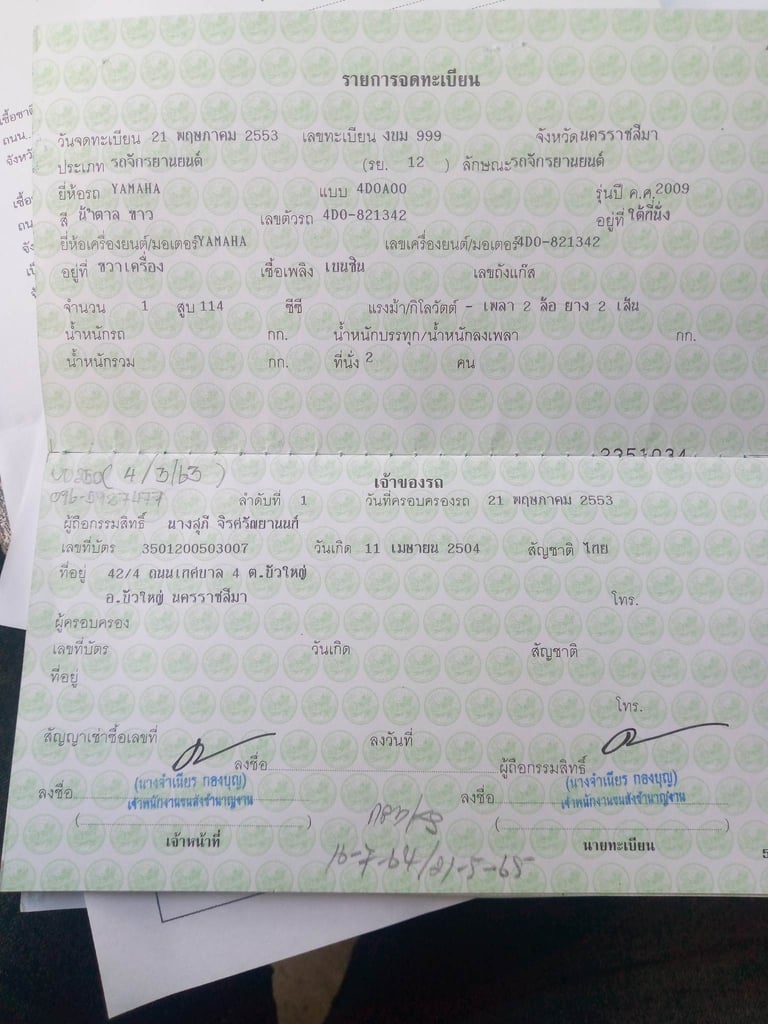 รายการจดทะเบียน
วันจดทะเบียน 21 พฤษภาคม 2553 เลขทะเบียน งบม 999 จังหวัด นครราชสีมา
ประเภท รถจักรยานยนต์ (รย. 12 ) ลักษณะ รถจักรยานยนต์
ยี่ห้อรถ YAMAHA แบบ 4D0A00 รุ่นปี ค.ศ. 2009
สี น้ำตาล ขาว เลขตัวรถ 4D0-821342 อยู่ที่ ใต้ที่นั่ง
ยี่ห้อเครื่องยนต์/มอเตอร์ YAMAHA เลขเครื่องยนต์/มอเตอร์ 4D0-821342
อยู่ที่ ขวาเครื่อง เชื้อเพลิง เบนซิน เลขถังแก๊ส
จำนวน 1 สูบ 114 ซีซี แรงม้า/กิโลวัตต์ - เพลา 2 ล้อ ยาง 2 เส้น
น้ำหนักรถ กก. น้ำหนักบรรทุก/น้ำหนักลงเพลา กก.
น้ำหนักรวม กก. ที่นั่ง 2 คน
(4/3/63)
เจ้าของรถ
ลำดับที่ 1 วันที่ครอบครองรถ 21 พฤษภาคม 2553
ผู้ถือกรรมสิทธิ์ นางสุภี จิรศวัฒยานนท์
เลขที่บัตร 3501200503007 วันเกิด 11 เมษายน 2504 สัญชาติ ไทย
ที่อยู่ 42/4 ถนนเทศบาล 4 ต.บัวใหญ่
อ.บัวใหญ่ นครราชสีมา โทร.
ผู้ครอบครอง
เลขที่บัตร วันเกิด สัญชาติ
ที่อยู่
โทร.
สัญญาเช่าซื้อเลขที่ ลงวันที่
ลงชื่อ ผู้ถือกรรมสิทธิ์
(นางจำเนียร กองบุญ) (นางจำเนียร กองบุญ)
ลงชื่อ เจ้าพนักงานขนส่งชำนาญงาน ลงชื่อ เจ้าพนักงานขนส่งชำนาญงาน
เจ้าหน้าที่ นายทะเบียน